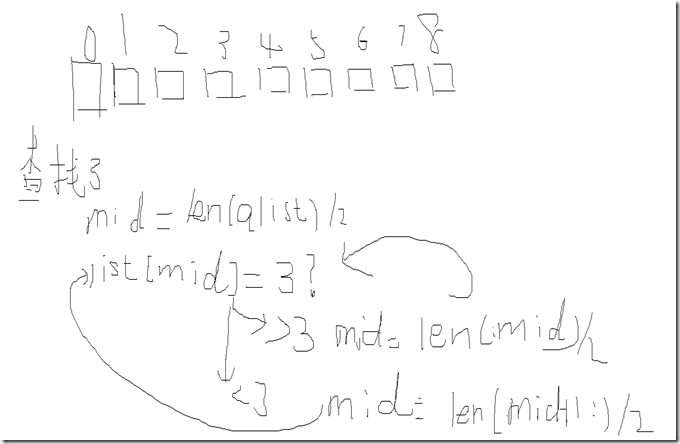 0 1 2 3 4 5 6 7 8
查找3
mid = len(alist)/2
list[mid]=3?
>3 mid= len(:mid)/2
<3 mid= len(mid+1:)/2